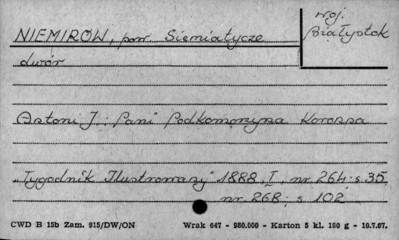 NIEMIRÓW, pow. Siemiatycze
woj. Białystok
dwór
Antoni J.: Pani Podkomorzyna
"Tygodnik Ilustrowany" 1888, I, nr 264: s 35
nr 268: s 102
CWD B 15b Zam. 915/DW/ON Wrak 647 - 980.000 - Karton 5 kl. 180 g - 10.7.67.